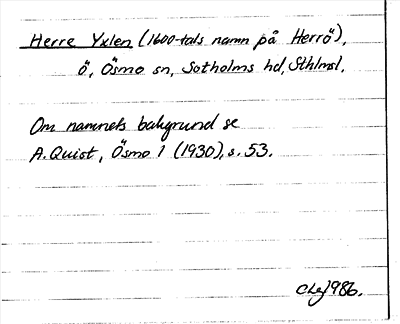 Herre Yxlen (1600-tals namn på Herrö),
ö, Ösmo sn, Sotholms hd, Sthlmsl.
Om namnets bakgrund se
A. Quist, Ösmo 1 (1930), s. 53.
CLej 1986.